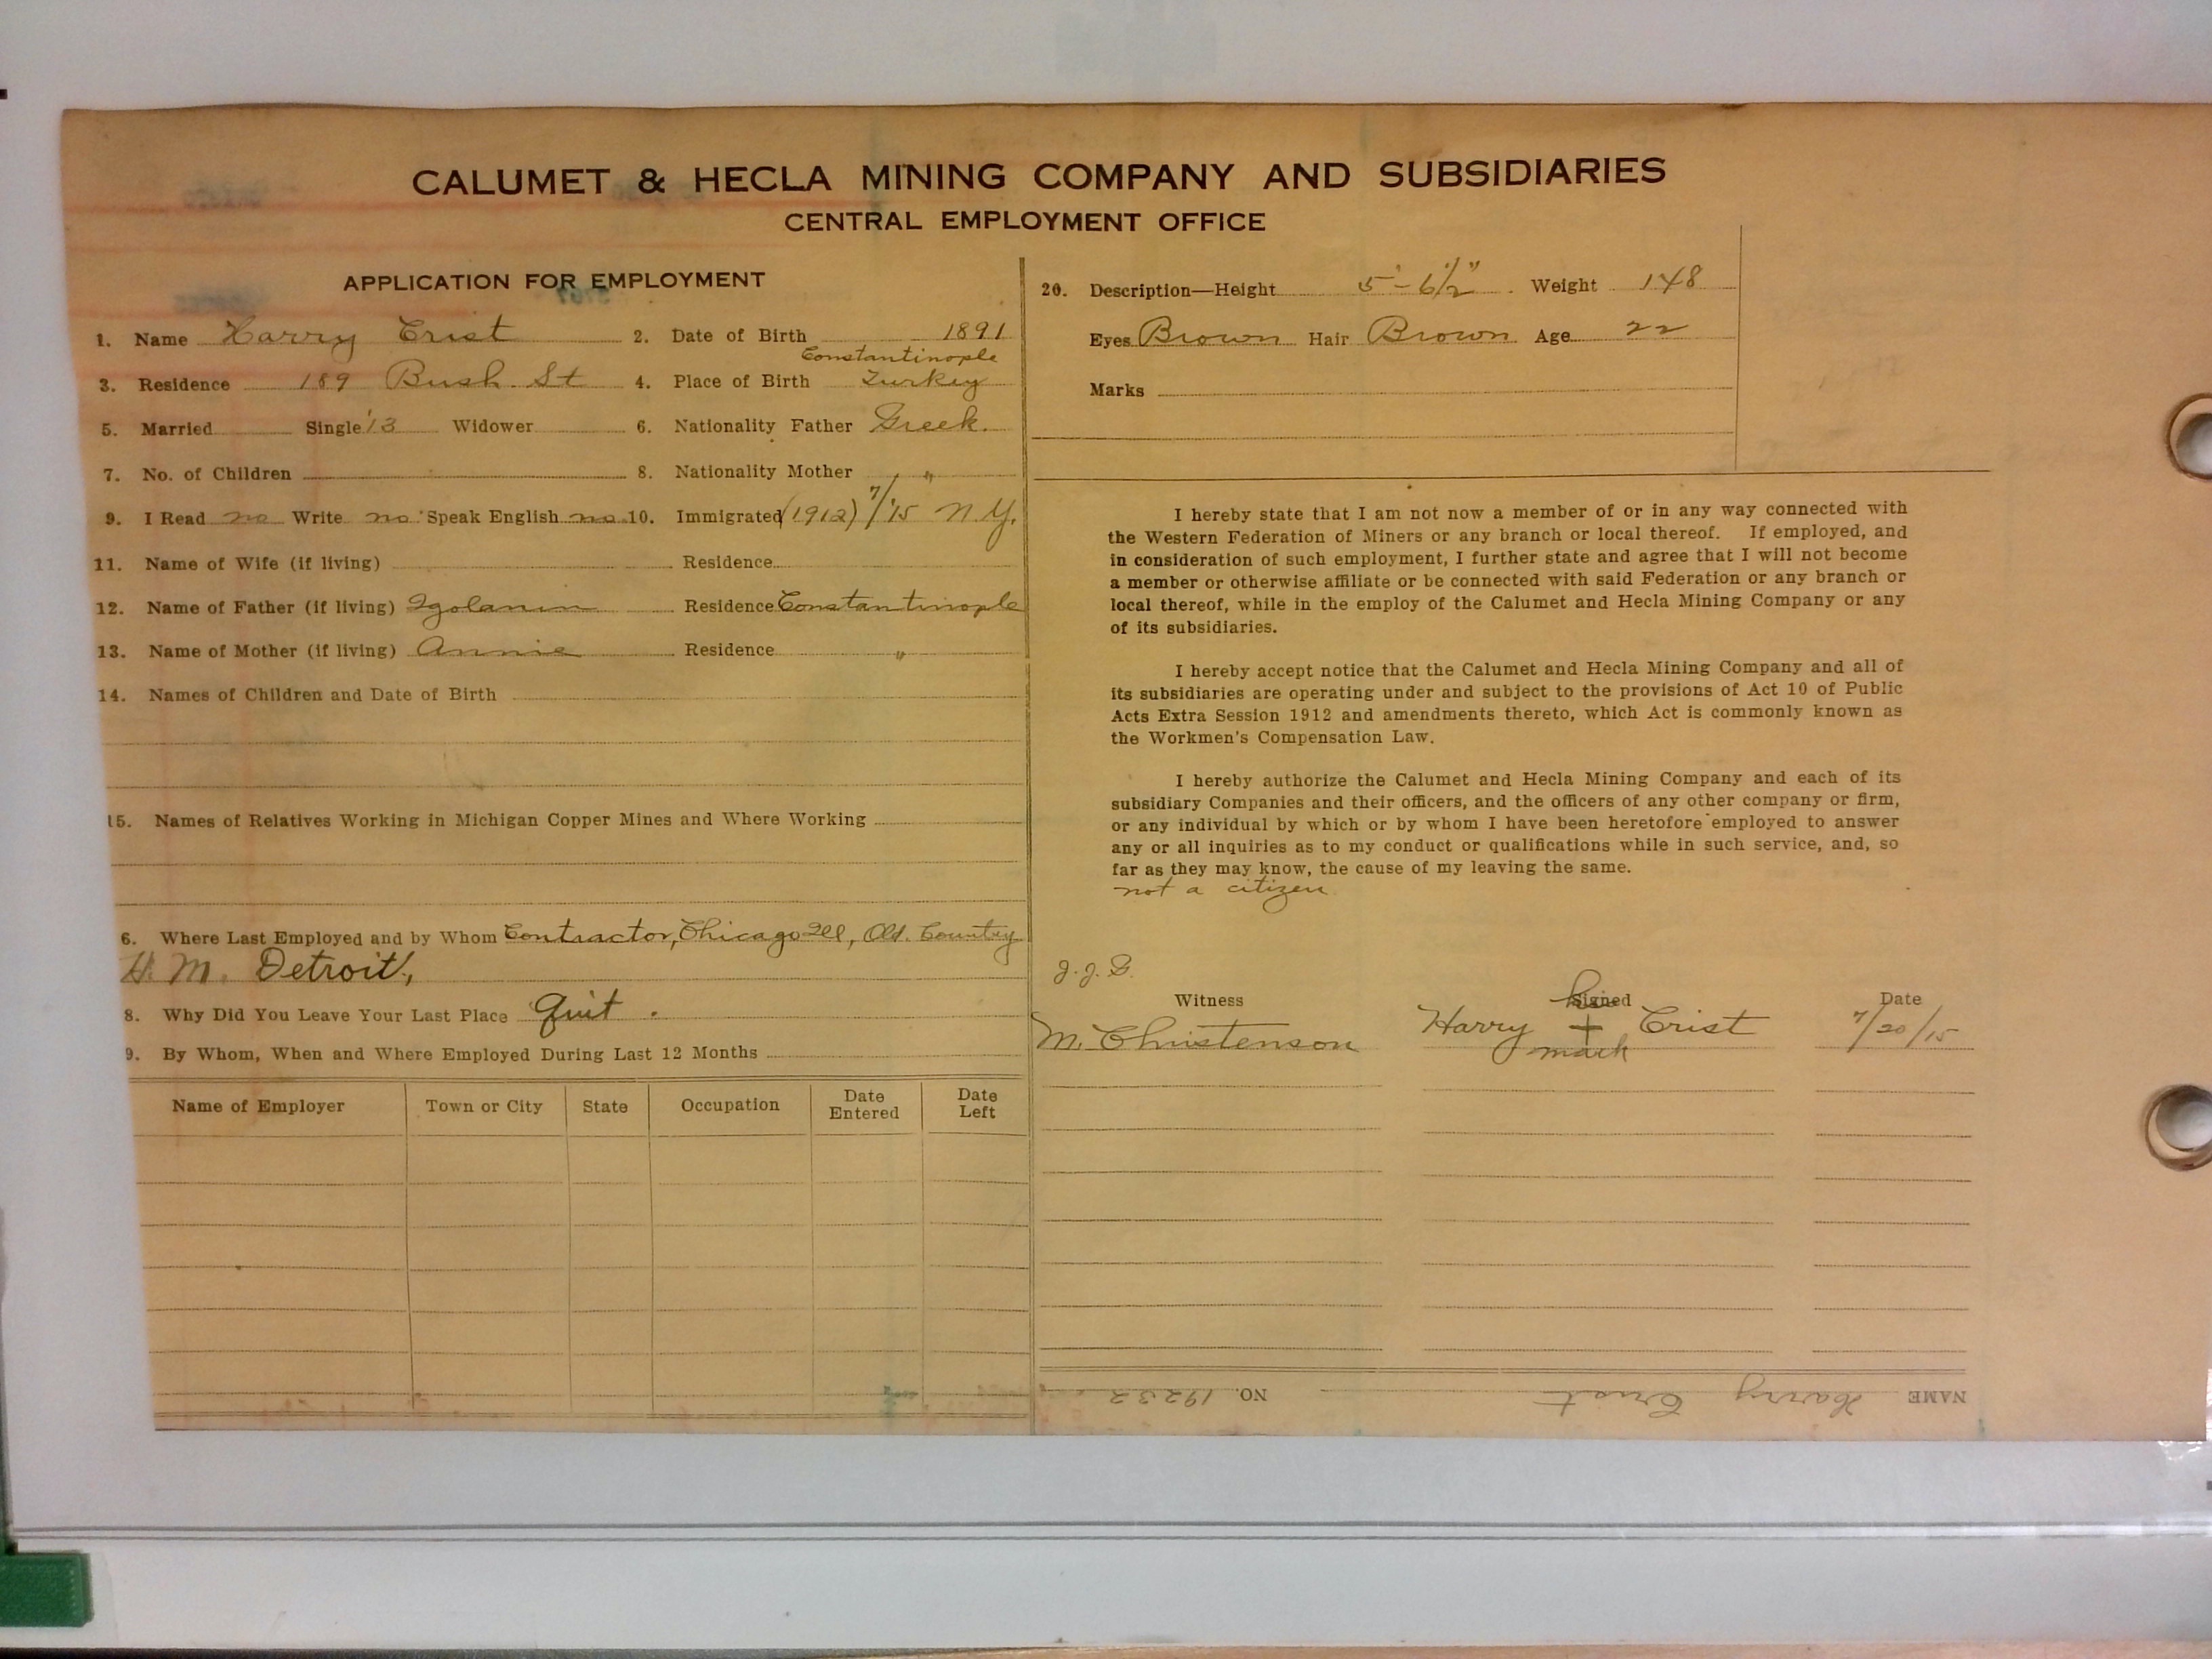 CALUMET & HECLA MINING COMPANY AND SUBSIDIARIES
CENTRAL EMPLOYMENT OFFICE
APPLICATION FOR EMPLOYMENT
1. Name Harry Crist 2. Date of Birth 1891
Constantinople
3. Residence 189 Bush St 4. Place of Birth Turkey
5. Married Single '13 Widower 6. Nationality Father Greek.
7. No. of Children 8. Nationality Mother "
9. I Read no Write no Speak English no 10. Immigrated (1912) 7/'15 N.Y.
11. Name of Wife (if living) Residence
12. Name of Father (if living) Residence Constantinople
13. Name of Mother (if living) Annie Residence "
14. Names of Children and Date of Birth
15. Names of Relatives Working in Michigan Copper Mines and Where Working
6. Where Last Employed and by Whom Contractor, Chicago Ill, Old. Country
H. M. Detroit,
8. Why Did You Leave Your Last Place Quit.
9. By Whom, When and Where Employed During Last 12 Months
Name of Employer Town or City State Occupation Date Entered Date Left
20. Description—Height 5'-6 1/2" Weight 148
Eyes Brown Hair Brown Age 22
Marks
I hereby state that I am not now a member of or in any way connected with
the Western Federation of Miners or any branch or local thereof. If employed, and
in consideration of such employment, I further state and agree that I will not become
a member or otherwise affiliate or be connected with said Federation or any branch or
local thereof, while in the employ of the Calumet and Hecla Mining Company or any
of its subsidiaries.
I hereby accept notice that the Calumet and Hecla Mining Company and all of
its subsidiaries are operating under and subject to the provisions of Act 10 of Public
Acts Extra Session 1912 and amendments thereto, which Act is commonly known as
the Workmen's Compensation Law.
I hereby authorize the Calumet and Hecla Mining Company and each of its
subsidiary Companies and their officers, and the officers of any other company or firm,
or any individual by which or by whom I have been heretofore employed to answer
any or all inquiries as to my conduct or qualifications while in such service, and, so
far as they may know, the cause of my leaving the same.
not a citizen
J.J.G.
Witness Signed Date
his
M. Christenson Harry + Crist 7/20/15
mark
NAME Harry Crist NO. 19232